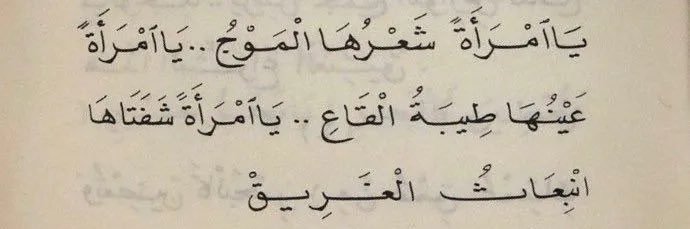 يَا ٱمْرَأَةً شَعْرُهَا الْمَوْجُ .. يَا ٱمْرَأَةً
عَيْنُهَا طِيبَةُ الْقَاعِ .. يَا ٱمْرَأَةً شَفَتَاهَا
انْبِعَاثُ الْغَرِيقْ